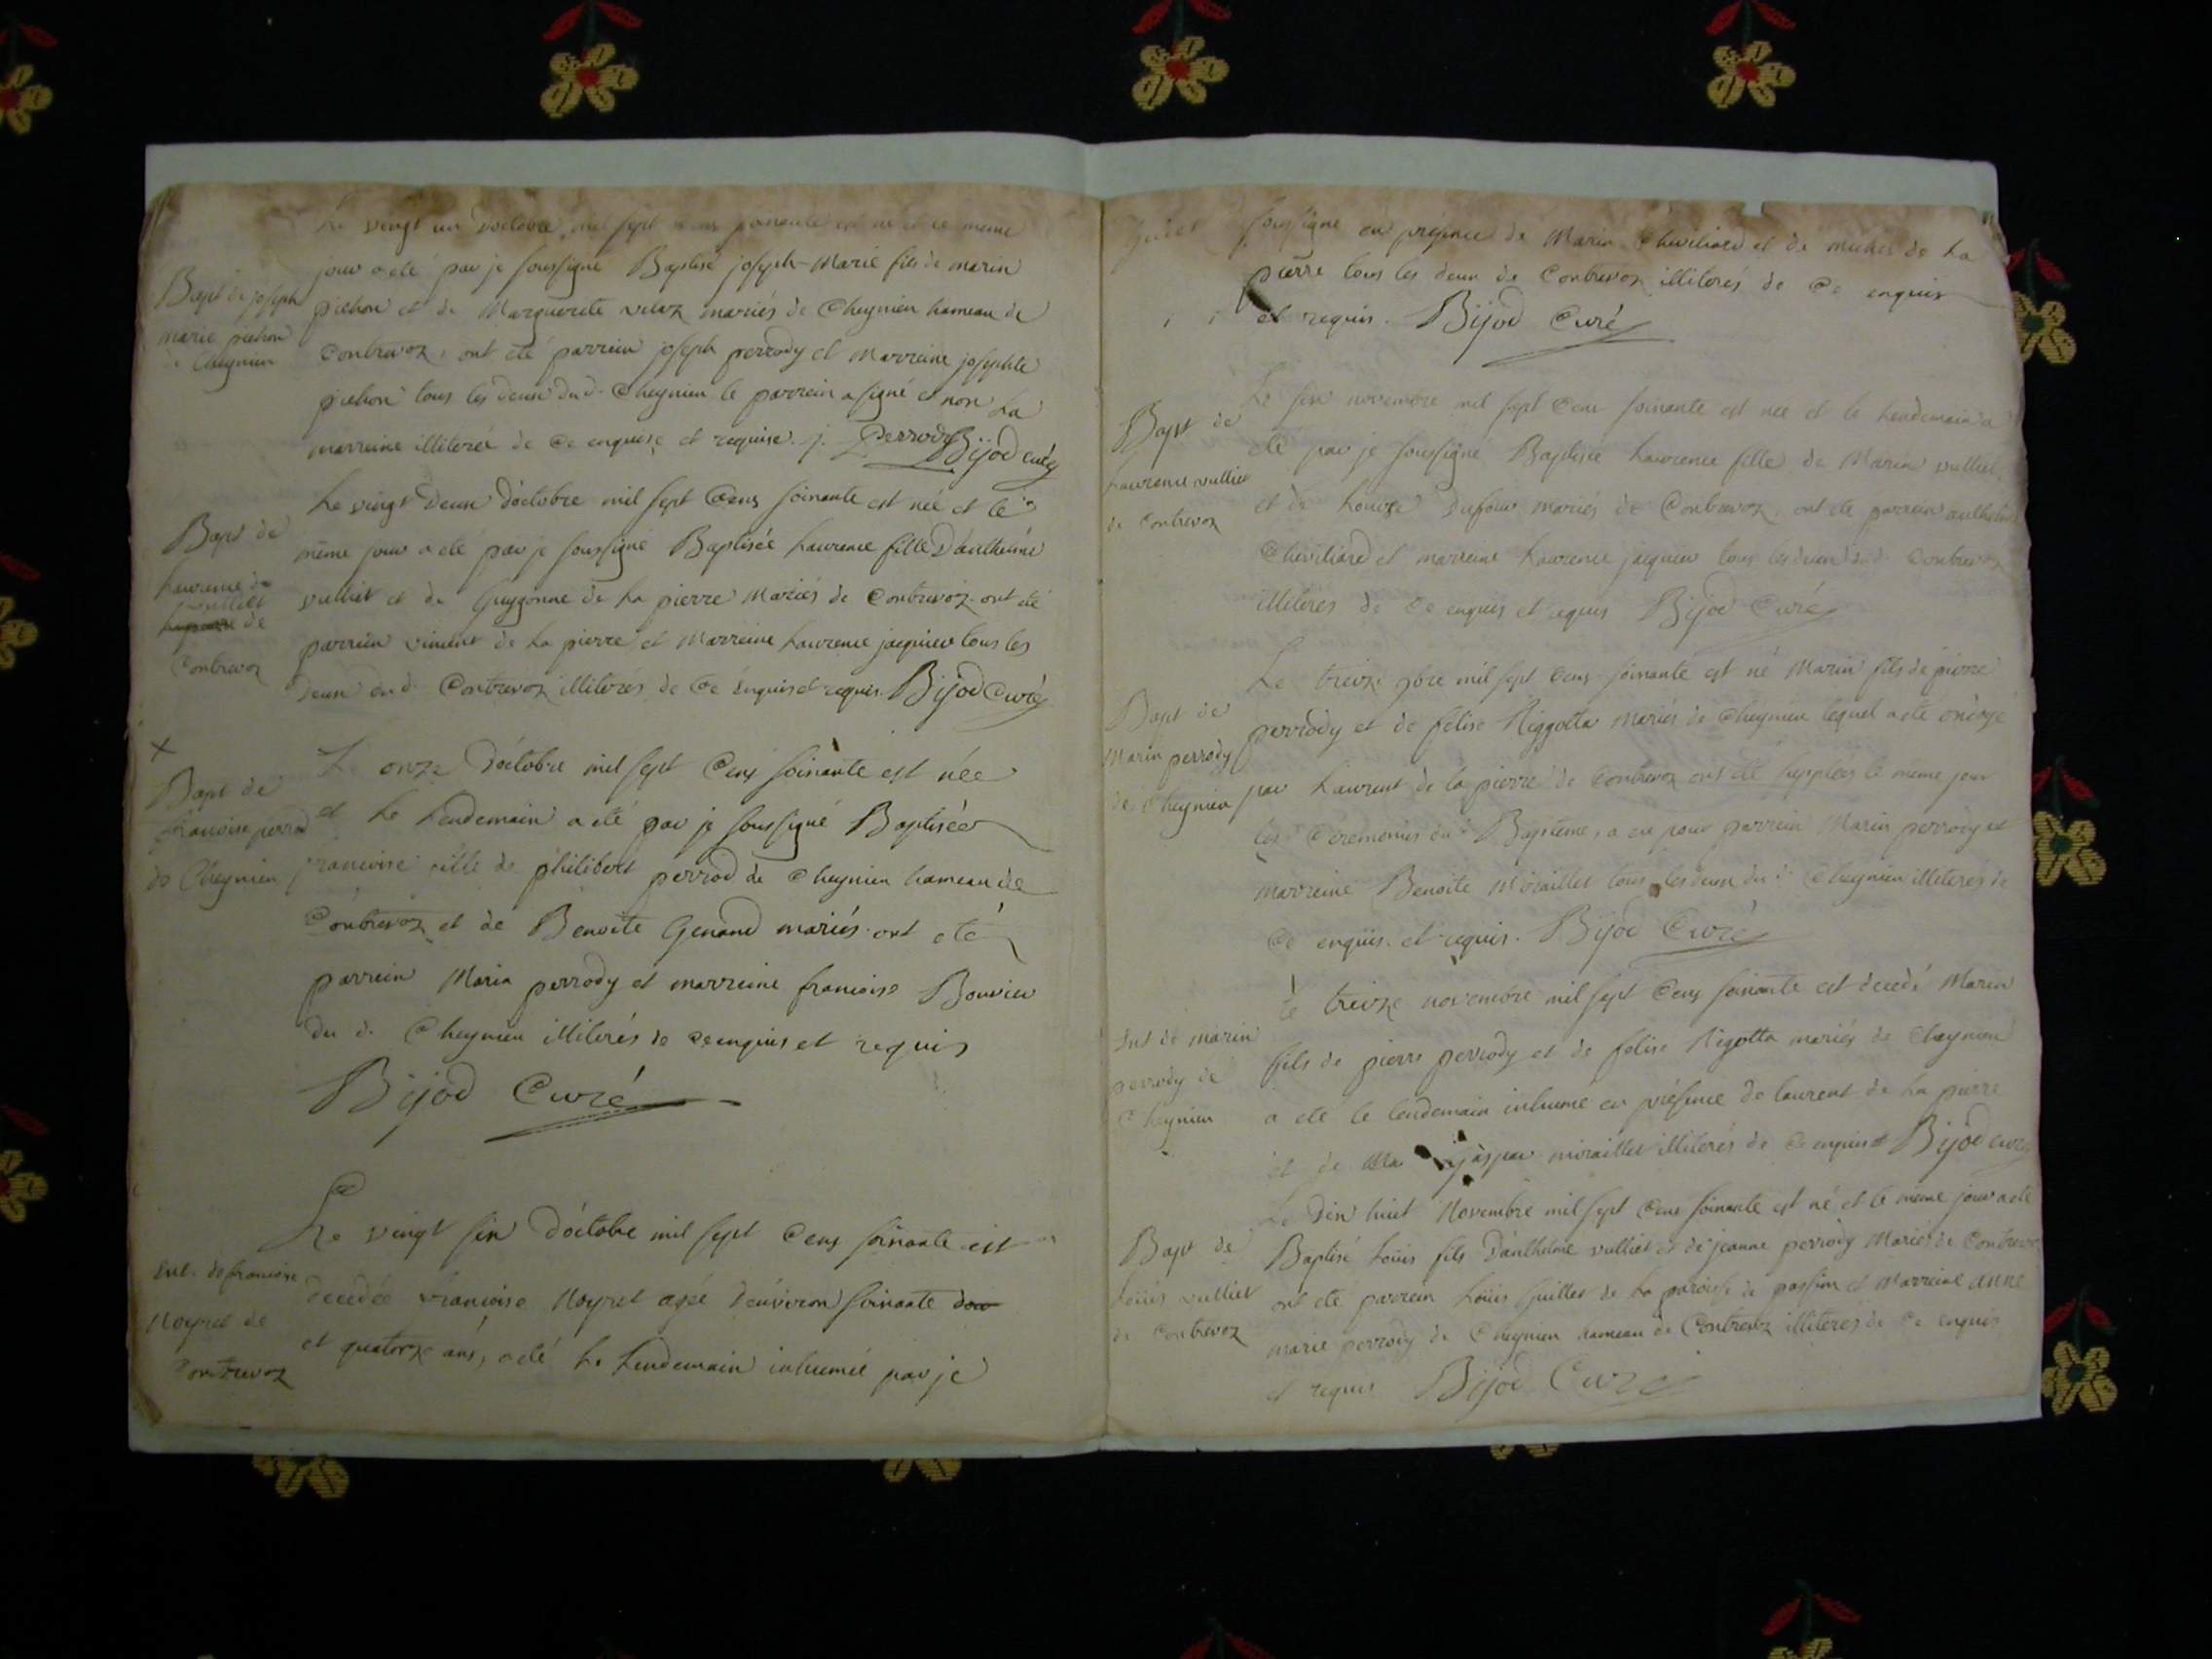 Le vingt un d'octobre mil sept cens soixante est né et ce meme
jour a eté par je soussigné Baptisé joseph-Marie fils de marin
Bapt de joseph
marie pichon
de Cheynieu
pichon et de Marguerete velax mariés de Cheynieu hameau de
Contrevoz, ont eté parrein joseph perrody et Marreine josephte
pichon tous les deux dud. Cheynieu le parrein a signé et non La
marreine illiterée de ce enquise et requise. j. Perrody Bijod curé
Bapt de
Laurence
vulliet
de
Contrevoz
Le vingt deux d'octobre mil sept Cens soixante est née et le
même jour a eté par je soussigné Baptisée Laurence fille D'anthelme
vulliet et de Guygonne de La pierre Mariés de Contrevoz ont eté
parrein vincent de La pierre et Marreine Laurence jacquier tous les
deux dud. Contrevoz illiteres de Ce Enquis et requis. Bijod Curé
X
Bapt de
francoise perrod
de Cheynieu
Le onze D'octobre mil sept Cens soixante est née
et Le Lendemain a eté par je soussigné Baptisée
francoise fille de philibert perrod de Cheynieu hameau de
Contrevoz et de Benoite Genand mariés ont eté
parrein Marin perrody et marreine francoise Bouvier
du d. Cheynieu illiterés de ce enquis et requis
Bijod Curé
Ent. de francoise
Noyret de
Contrevoz
Le vingt six D'octobre mil sept Cens soixante est
decedée francoise Noyret agée d'environ soixante
et quatorze ans, a eté Le Lendemain inhumée par je
soussigné en présence de Marin Cheviliard et de michel de La
pierre tous les deux de Contrevoz illiterés de Ce enquis
et requis. Bijod Curé
Bapt de
Laurence vulliet
de Contrevoz
Le six novembre mil sept Cens soixante est née et le Lendemain a
eté par je soussigné Baptisée Laurence fille de Marin vulliet
et de Louise Dufour mariés de Contrevoz, ont ete parrein anthelme
Cheviliard et marreine Laurence jacquier tous les deux dud. Contrevoz
illiteres de Ce enquis et requis Bijod Curé
Bapt de
Marin perrody
de Cheynieu
Le treize 9bre mil sept Cens soixante est né Marin fils de pierre
perrody et de felise Riggotta mariés de Cheynieu lequel a eté ondoyé
par Laurent de la pierre de Contrevoz ont eté supplées le même jour
les Ceremonies du Baptême, a eu pour parrein Marin perrody et
marreine Benoite Miraillet tous les deux du d. Cheynieu illiterés de
Ce enquis et requis. Bijod Curé
Ent de marin
perrody de
Cheynieu
Le treize novembre mil sept Cens soixante est decedé Marin
fils de pierre perrody et de felise Rigotta mariés de Cheynieu
a eté le lendemain inhumé en présence de laurent de La pierre
et de gaspar miraillet illiterés de Ce enquis et Bijod curé
Bapt de
Loüis vulliet
de Contrevoz
Le dix huit Novembre mil sept Cens soixante est né et le même jour a eté
Baptisé Loüis fils D'anthelme vulliet et de jeanne perrody Mariés de Contrevoz
ont eté parrein Loüis Guillet de La paroisse de passin et Marreine anne
marie perrody de Cheynieu hameau de Contrevoz illiterés de Ce enquis
et requis Bijod Curé